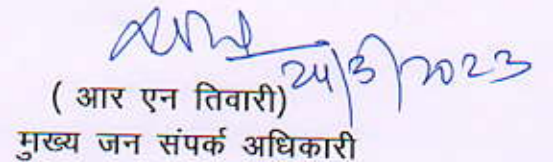 24/3/2023
( आर एन तिवारी)
मुख्य जन संपर्क अधिकारी